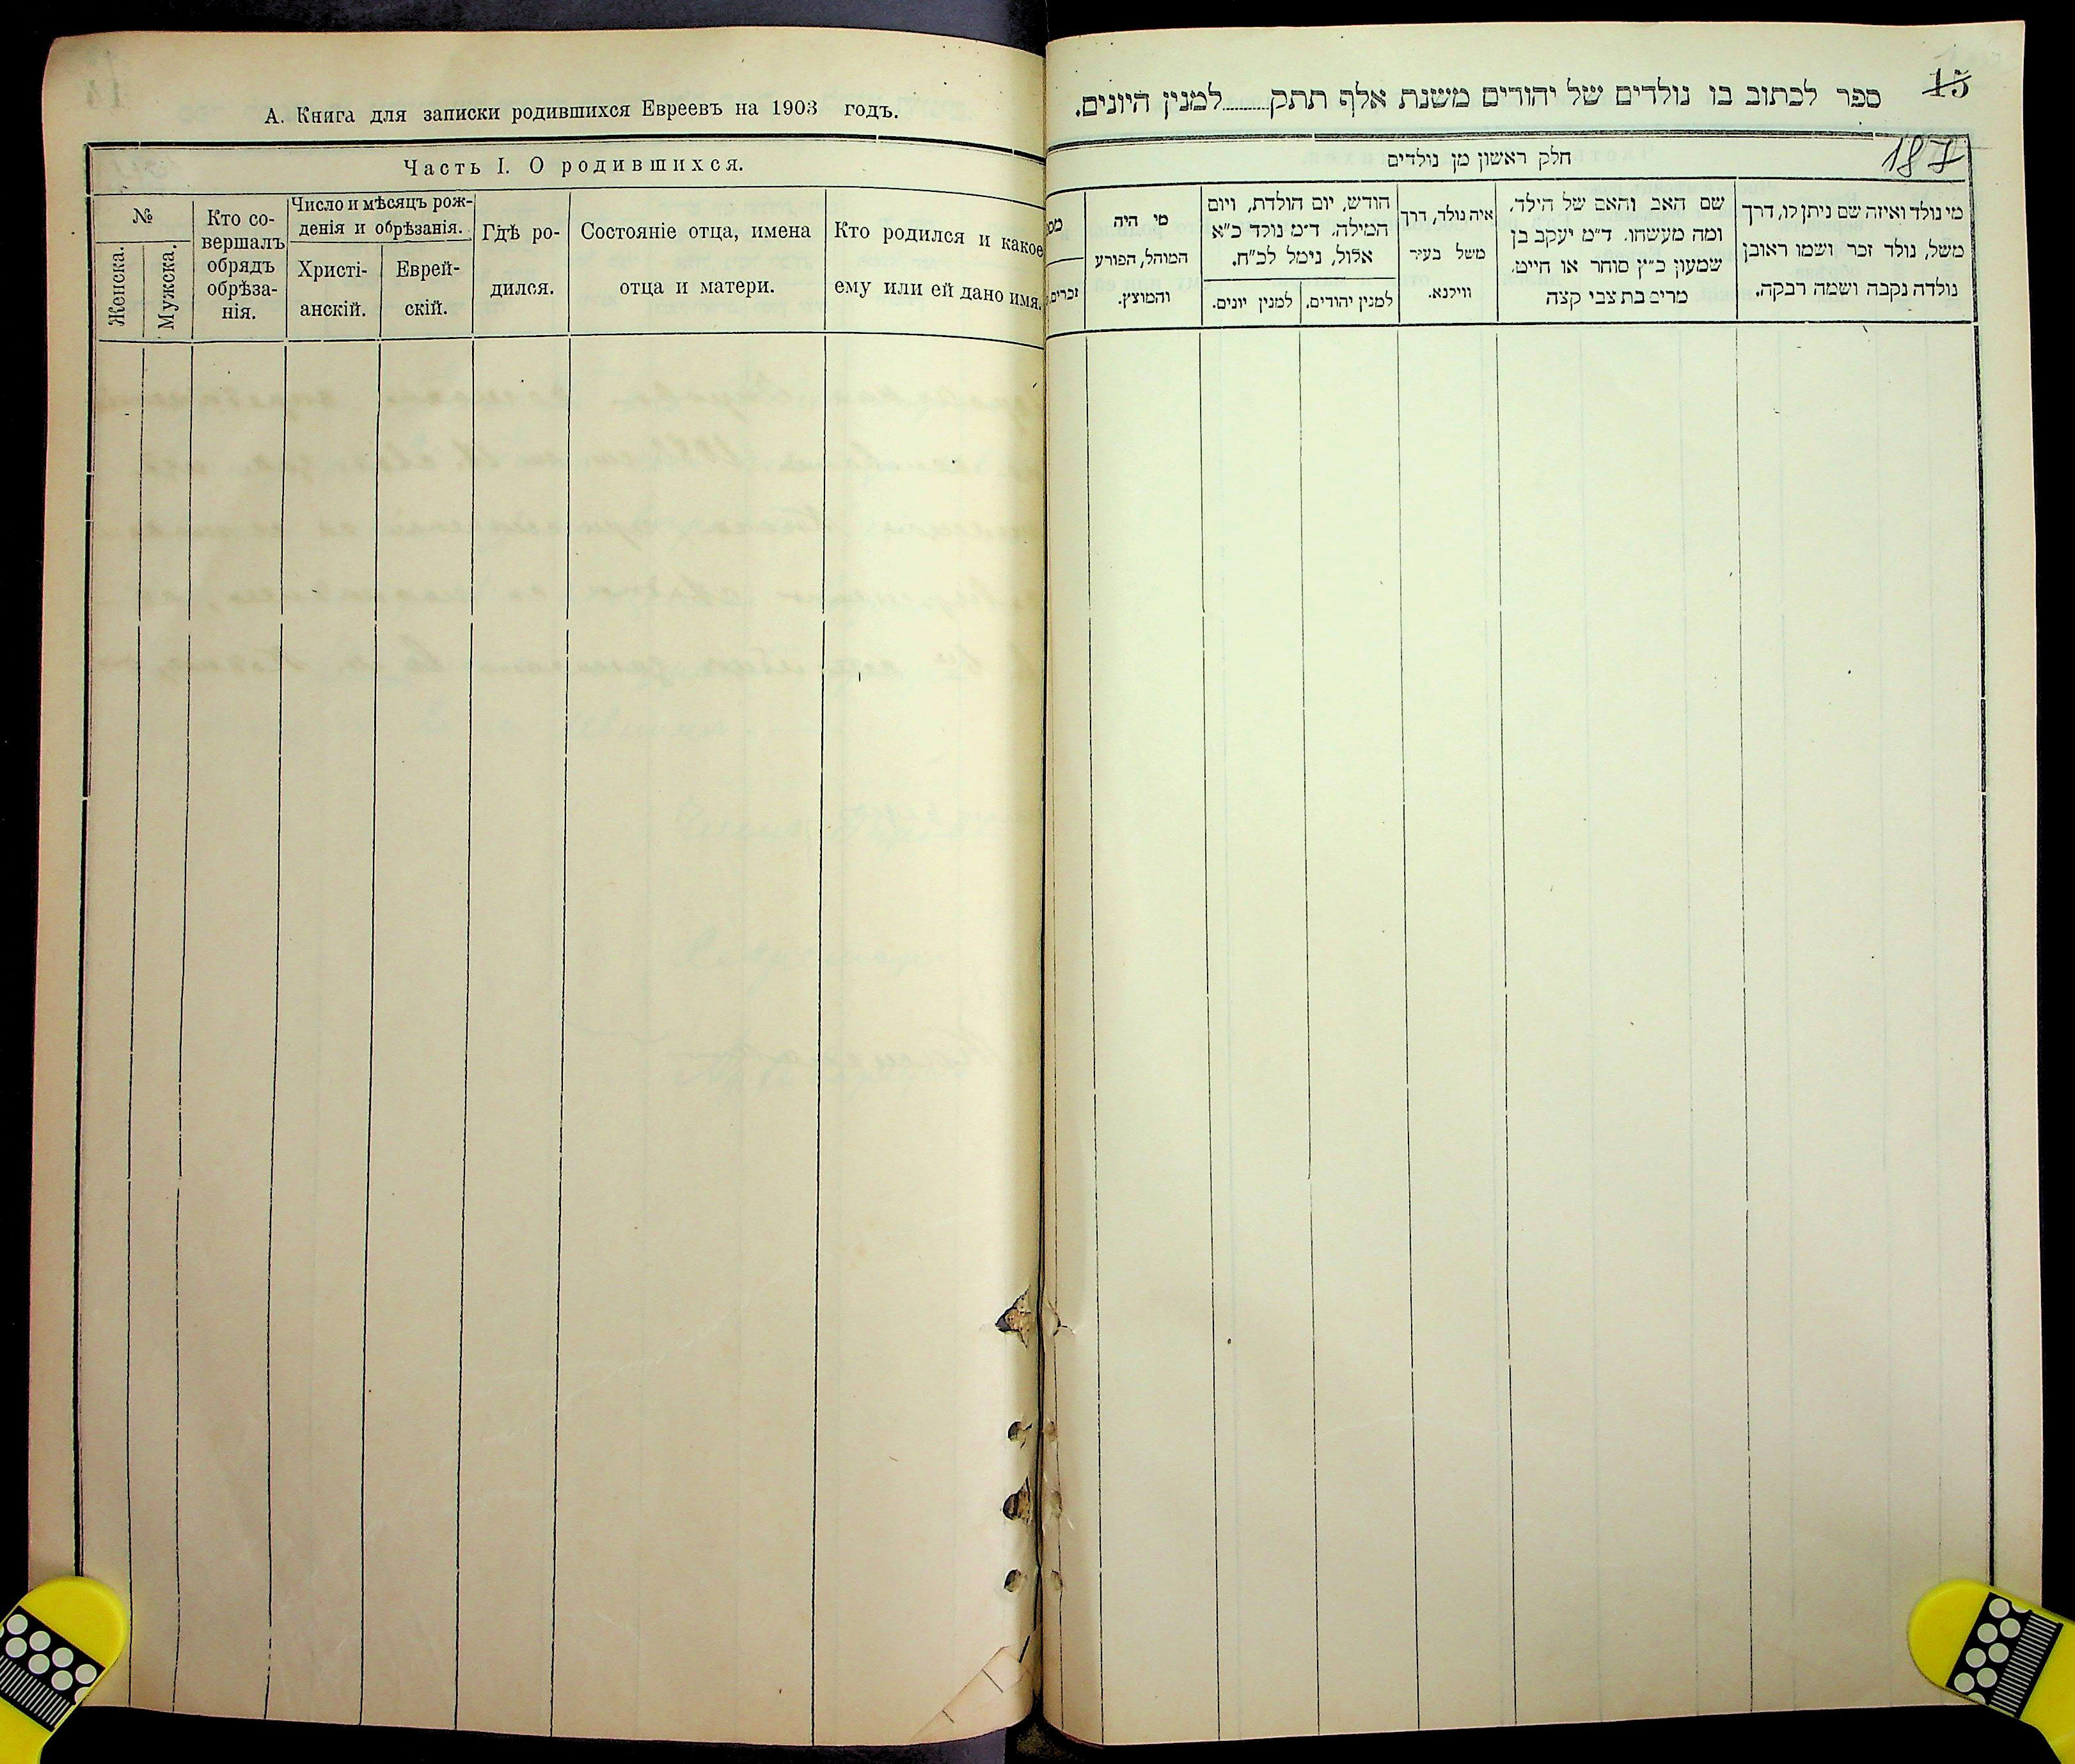 А. Книга для записки родившихся Евреевъ на 1903 годъ.
Часть I. О родившихся.
№
Женска.
Мужска.
Кто со-
вершалъ
обрядъ
обрѣза-
нія.
Число и мѣсяцъ рож-
денія и обрѣзанія.
Христі-
анскій.
Еврей-
скій.
Гдѣ ро-
дился.
Состояніе отца, имена
отца и матери.
Кто родился и какое
ему или ей дано имя.
15
ספר לכתוב בו נולדים של יהודים משנת אלף תתק......למנין היונים.
187
חלק ראשון מן נולדים
מי נולד ואיזה שם ניתן לו, דרך
משל, נולד זכר ושמו ראובן
נולדה נקבה ושמה רבקה.
שם האב והאם של הילד,
ומה מעשהו. ד״מ יעקב בן
שמעון כ״ץ סוחר או חייט.
מרים בת צבי קצה
איה נולד, דרך
משל בעיר
ווילנא.
חודש, יום הולדת, ויום
המילה. ד״מ נולד כ״א
אלול, נימל לכ״ח.
למנין יהודים.
למנין יונים.
מי היה
המוהל, הפורע
והמוצץ.
זכרים